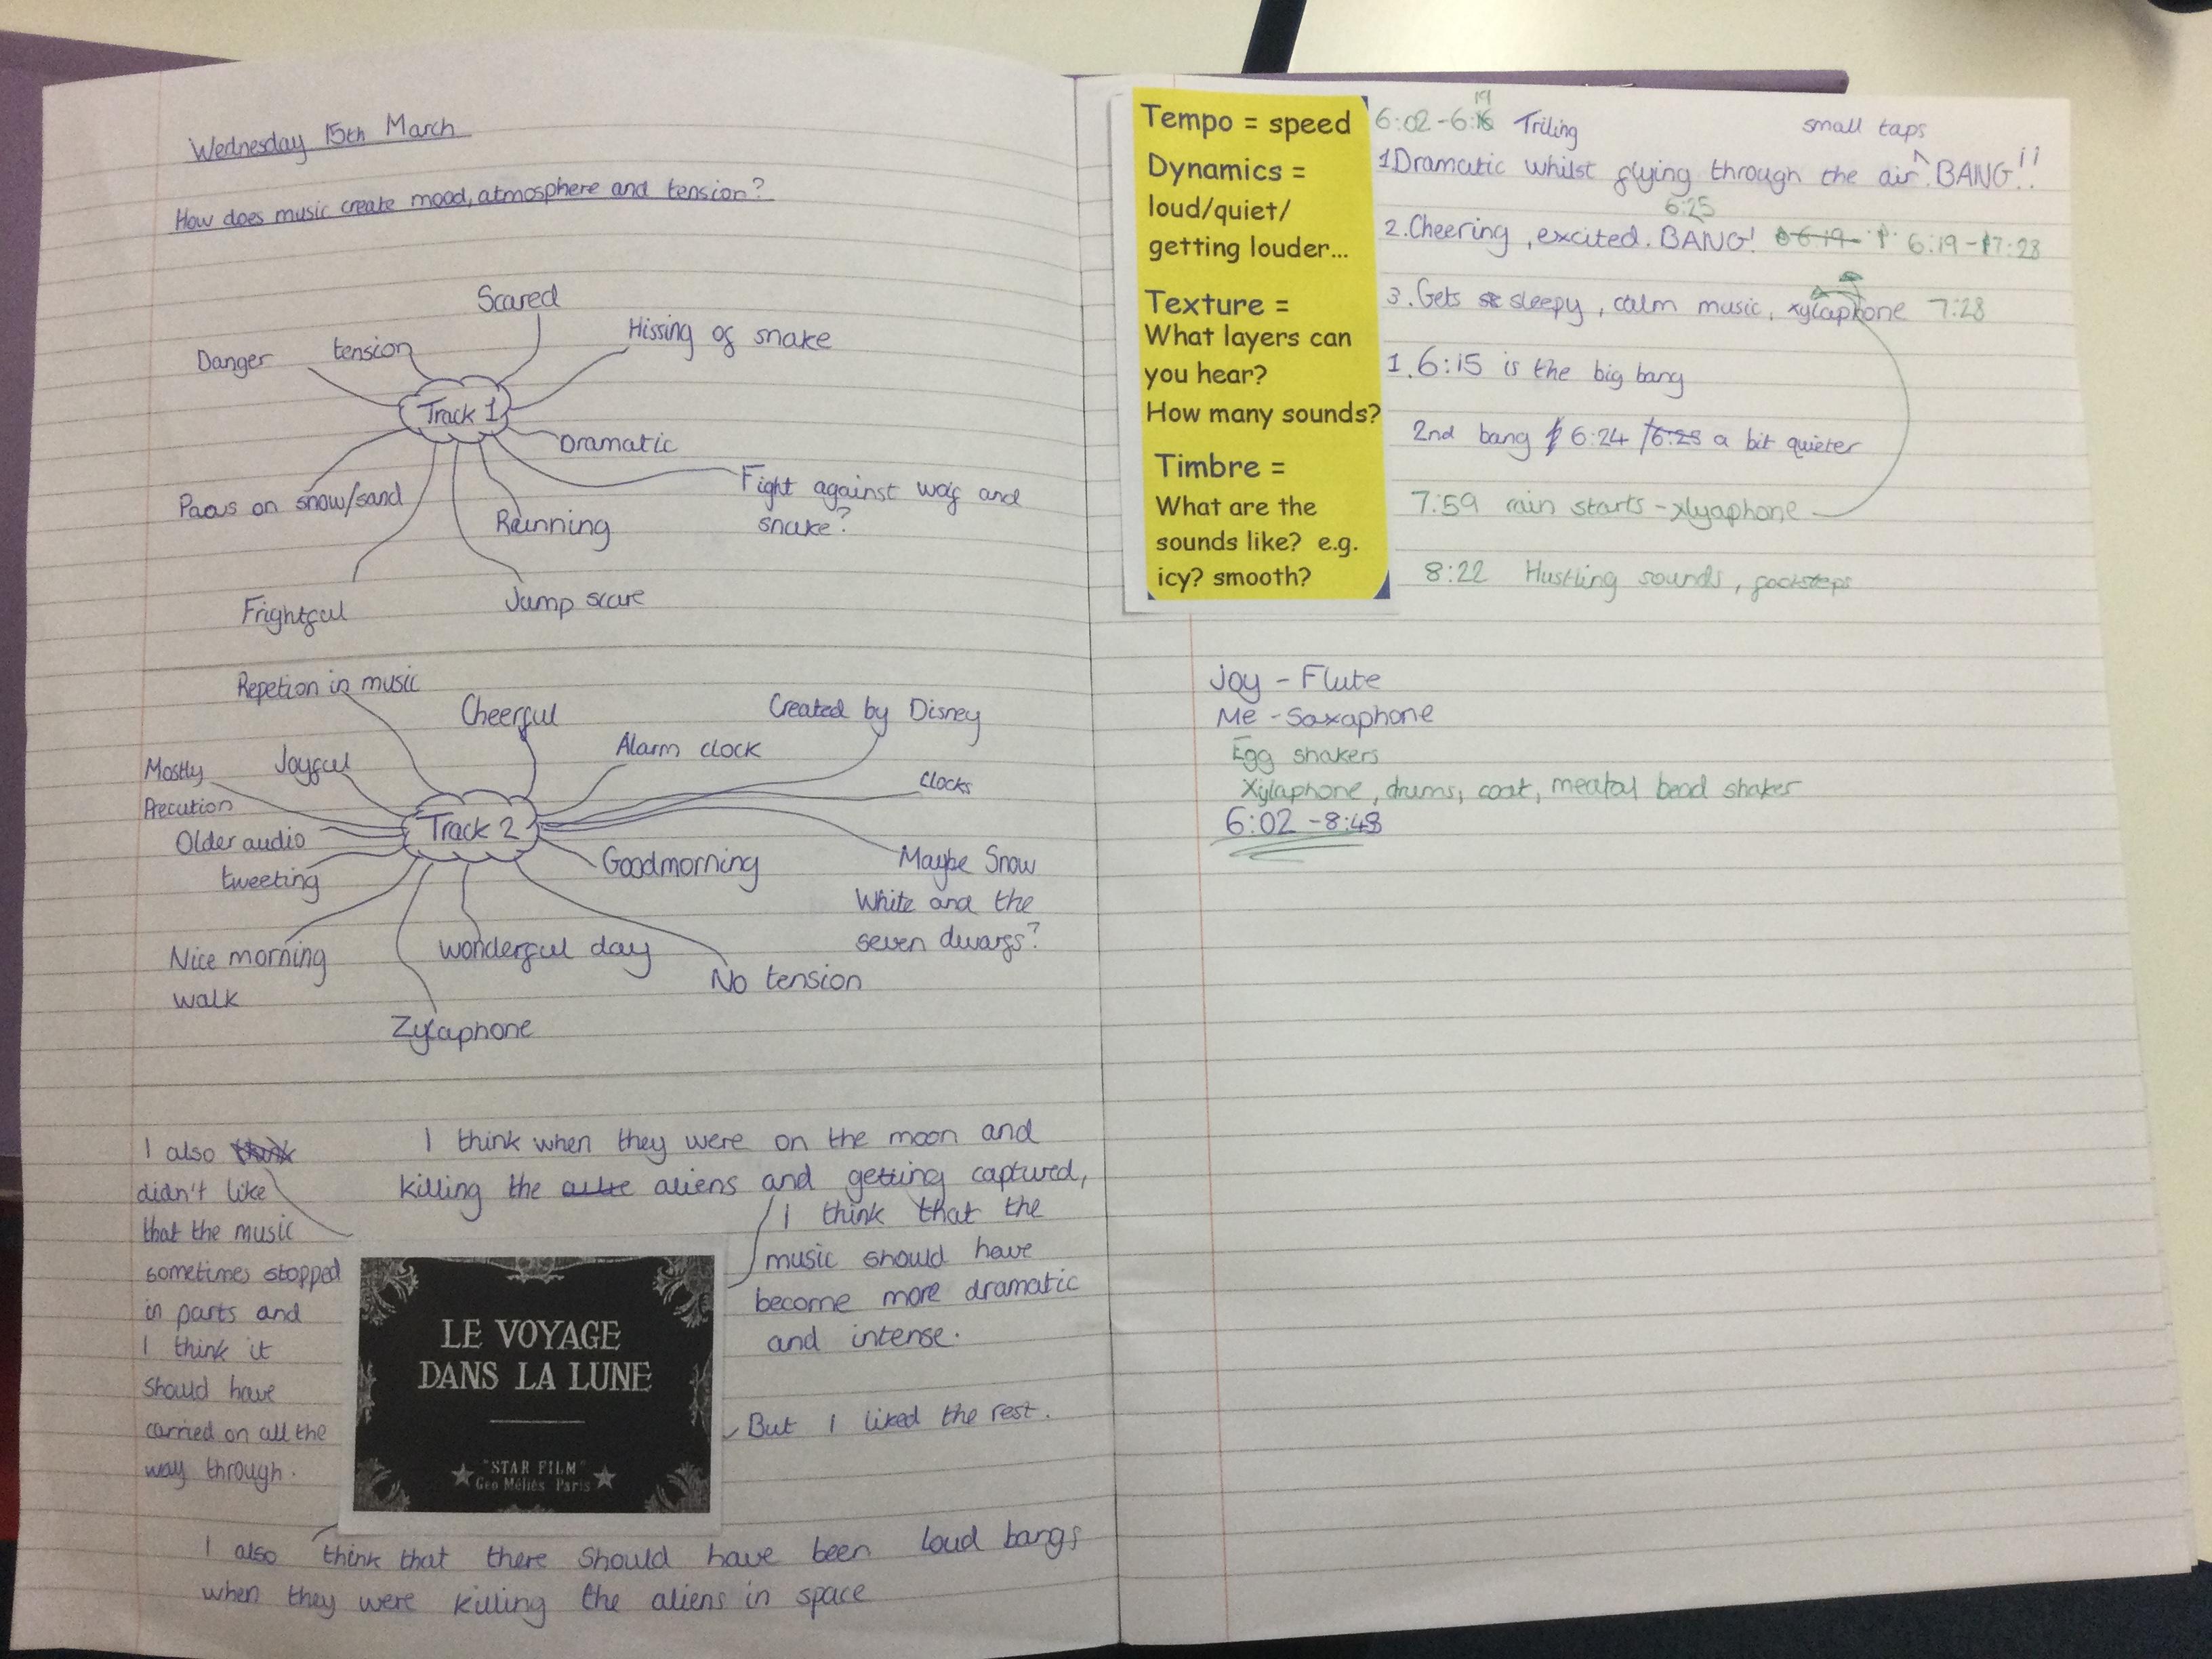 Wednesday 15th March
How does music create mood, atmosphere and tension?
Scared
Hissing of snake
tension
Danger
Track 1
Dramatic
Fight against wolf and
snake?
Paws on snow/sand
Running
Jump scare
Frightful
Repetion in music
Cheerful
Created by Disney
Alarm clock
Joyful
Mostly
Precution
Clocks
Track 2
Older audio
tweeting
Goodmorning
Maybe Snow
White and the
seven dwarfs?
Nice morning
walk
wonderful day
No tension
Zylaphone
I also think
didn't like
that the music
sometimes stopped
in parts and
I think it
should have
carried on all the
way through.
I think when they were on the moon and
killing the aliens and getting captured,
I think that the
music should have
become more dramatic
and intense.
LE VOYAGE
DANS LA LUNE
"STAR FILM"
Geo Méliès Paris
But I liked the rest.
I also think that there should have been loud bangs
when they were killing the aliens in space
Tempo = speed
Dynamics =
loud/quiet/
getting louder...
Texture =
What layers can
you hear?
How many sounds?
Timbre =
What are the
sounds like? e.g.
icy? smooth?
19
6:02-6:16 Triling
small taps
1 Dramatic whilst flying through the air. BANG!!
6:25
2. Cheering, excited. BANG! 6:19- 6:19-7:28
3. Gets sleepy, calm music, xylaphone 7:28
1. 6:15 is the big bang
2nd bang 6:24 /6:25 a bit quieter
7:59 rain starts - xlyaphone
8:22 Hustling sounds, footsteps
Joy - Flute
Me - Saxaphone
Egg shakers
Xylaphone, drums, coat, meatal bead shaker
6:02 - 8:48